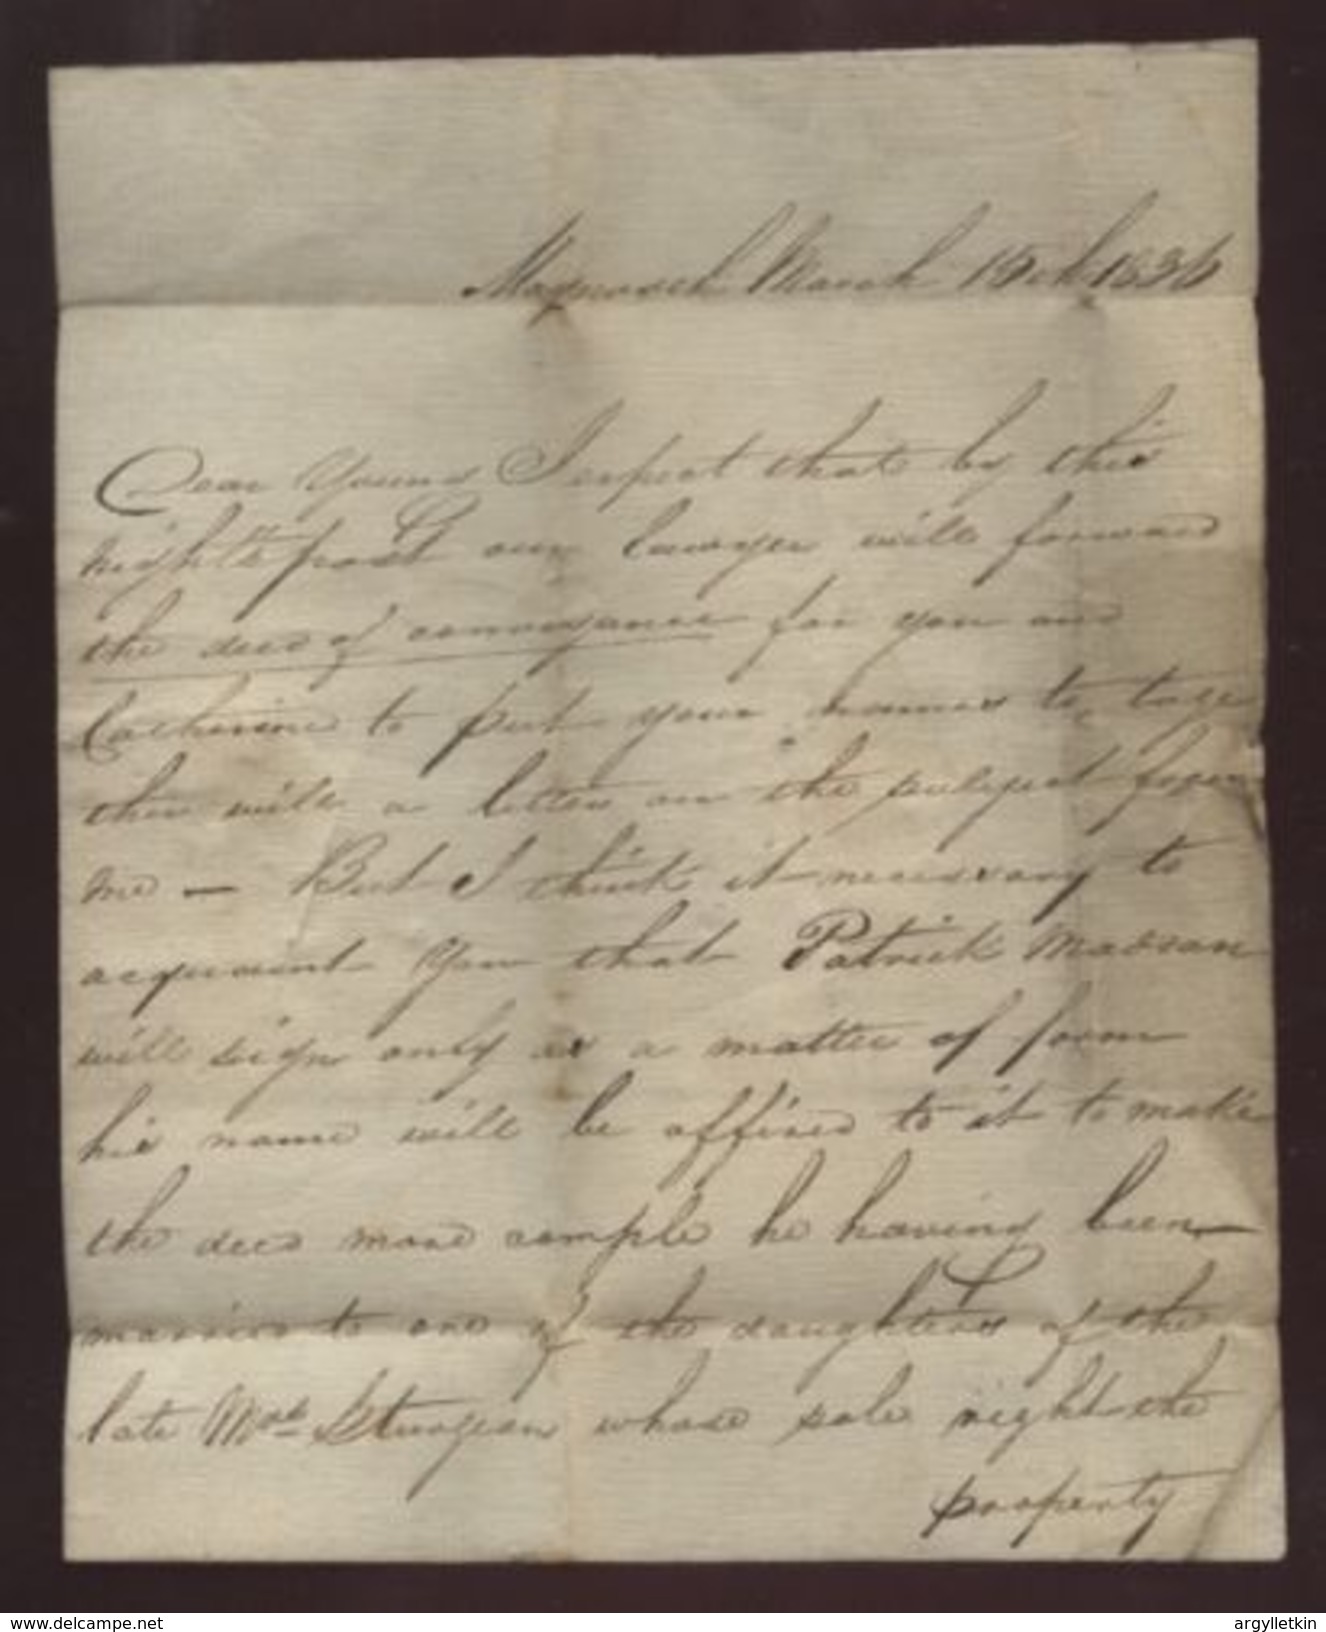 March 15th 1836
Dear Young I expect that by this
night's post our lawyer will forward
the deed of conveyance for you and
Catherine to put your names to, toge
ther with a letter on the subject from
me — But I think it necessary to
acquaint You that Patrick
will sign only as a matter of form
his name will be affixed to it to make
the deed more ample he having been
married to one of the daughters of the
late Mrs Sturgeon whose sole right the
property
delcampe.net
argylletkin